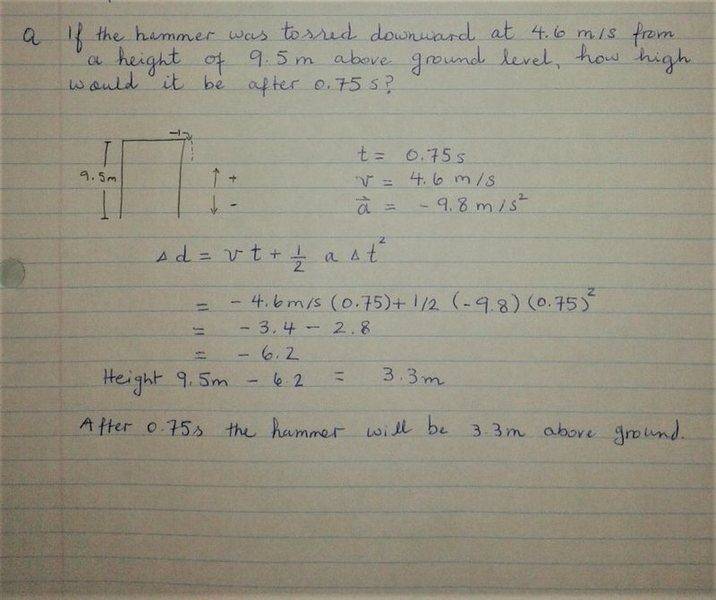 Q If the hammer was tossed downward at 4.6 m/s from
a height of 9.5m above ground level, how high
would it be after 0.75 s?
9.5m
+
-
t = 0.75s
v = 4.6 m/s
a⃗ = -9.8 m/s²
Δd = vt + 1/2 a Δt²
= -4.6m/s (0.75) + 1/2 (-9.8) (0.75)²
= -3.4 - 2.8
= -6.2
Height 9.5m - 6.2 = 3.3m
After 0.75s the hammer will be 3.3m above ground.